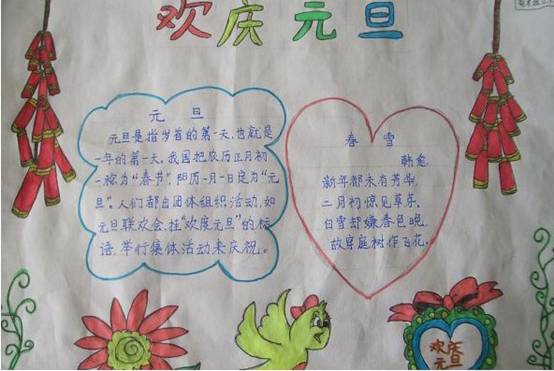 欢庆元旦
元 旦
元旦是指岁首的第一天,也就是
一年的第一天。我国把农历正月初
一称为“春节”,阳历一月一日定为“元
旦”。人们都由团体组织活动,如
元旦联欢会、挂“欢度元旦”的标
语、举行集体活动来庆祝。
春 雪
韩愈
新年都未有芳华,
二月初惊见草芽。
白雪却嫌春色晚,
故穿庭树作飞花。
欢庆
元旦